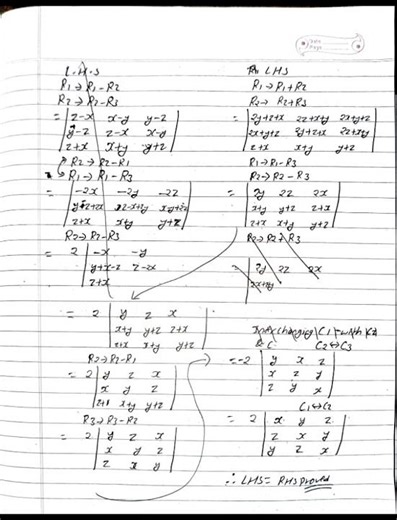 Date
Page
L.H.S
R1 → R1-R2
R2 → R2-R3
= | z-x x-y y-z |
| y-z z-x x-y |
| z+x x+y y+z |
R2 → R2-R1
R1 → R1-R3
= | -2x -2y -2z |
| z+x x+y y+z |
R2 → R2-R3
= 2 | -x -y
| y+x-z z-2x
| z+x
= 2 | y z x |
| x+y y+z z+x |
| z+x x+y y+z |
R2 → R2-R1
= 2 | y z x |
| x y z |
| z+x x+y y+z |
R3 → R3-R2
= 2 | y z x |
| x y z |
| z x y |
LHS
R1 → R1+R2
R2 → R2+R3
= | 2y+z+x 2z+x+y 2x+y+z |
| 2x+y+z 2y+z+x 2z+x+y |
| z+x x+y y+z |
R1 → R1-R3
R2 → R2-R3
= | 2y 2z 2x |
| x+y y+z z+x |
| z+x x+y y+z |
R2 → R2 R3
= | 2y 2z 2x |
Interchanging C1 with C2
C2 ↔ C3
= -2 | y x z |
| x z y |
| z y x |
C1 ↔ C2
= 2 | x y z |
| z x y |
| y z x |
∴ LHS = RHS proved